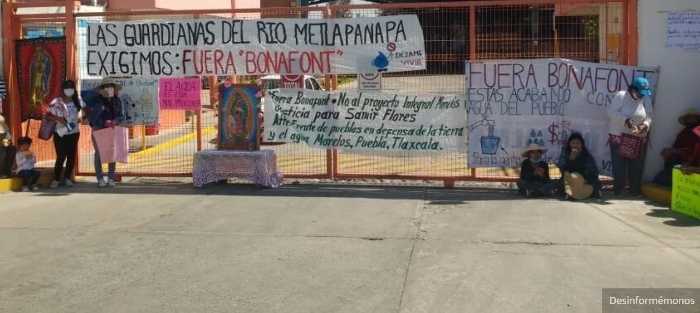 LAS GUARDIANAS DEL RIO METLAPANAPA
EXIGIMOS: FUERA "BONAFONT"
DÉJAME
VIVIR
EL AGUA
Fuera Bonafont • No al proyecto Integral Morelos
Justicia para Samir Flores
Atte Frente de pueblos en defensa de la tierra
y el agua. Morelos, Puebla, Tlaxcala.
FUERA BONAFONT
ESTAS ACABANDO CON
AGUA DEL PUEBLO
Desinformémonos